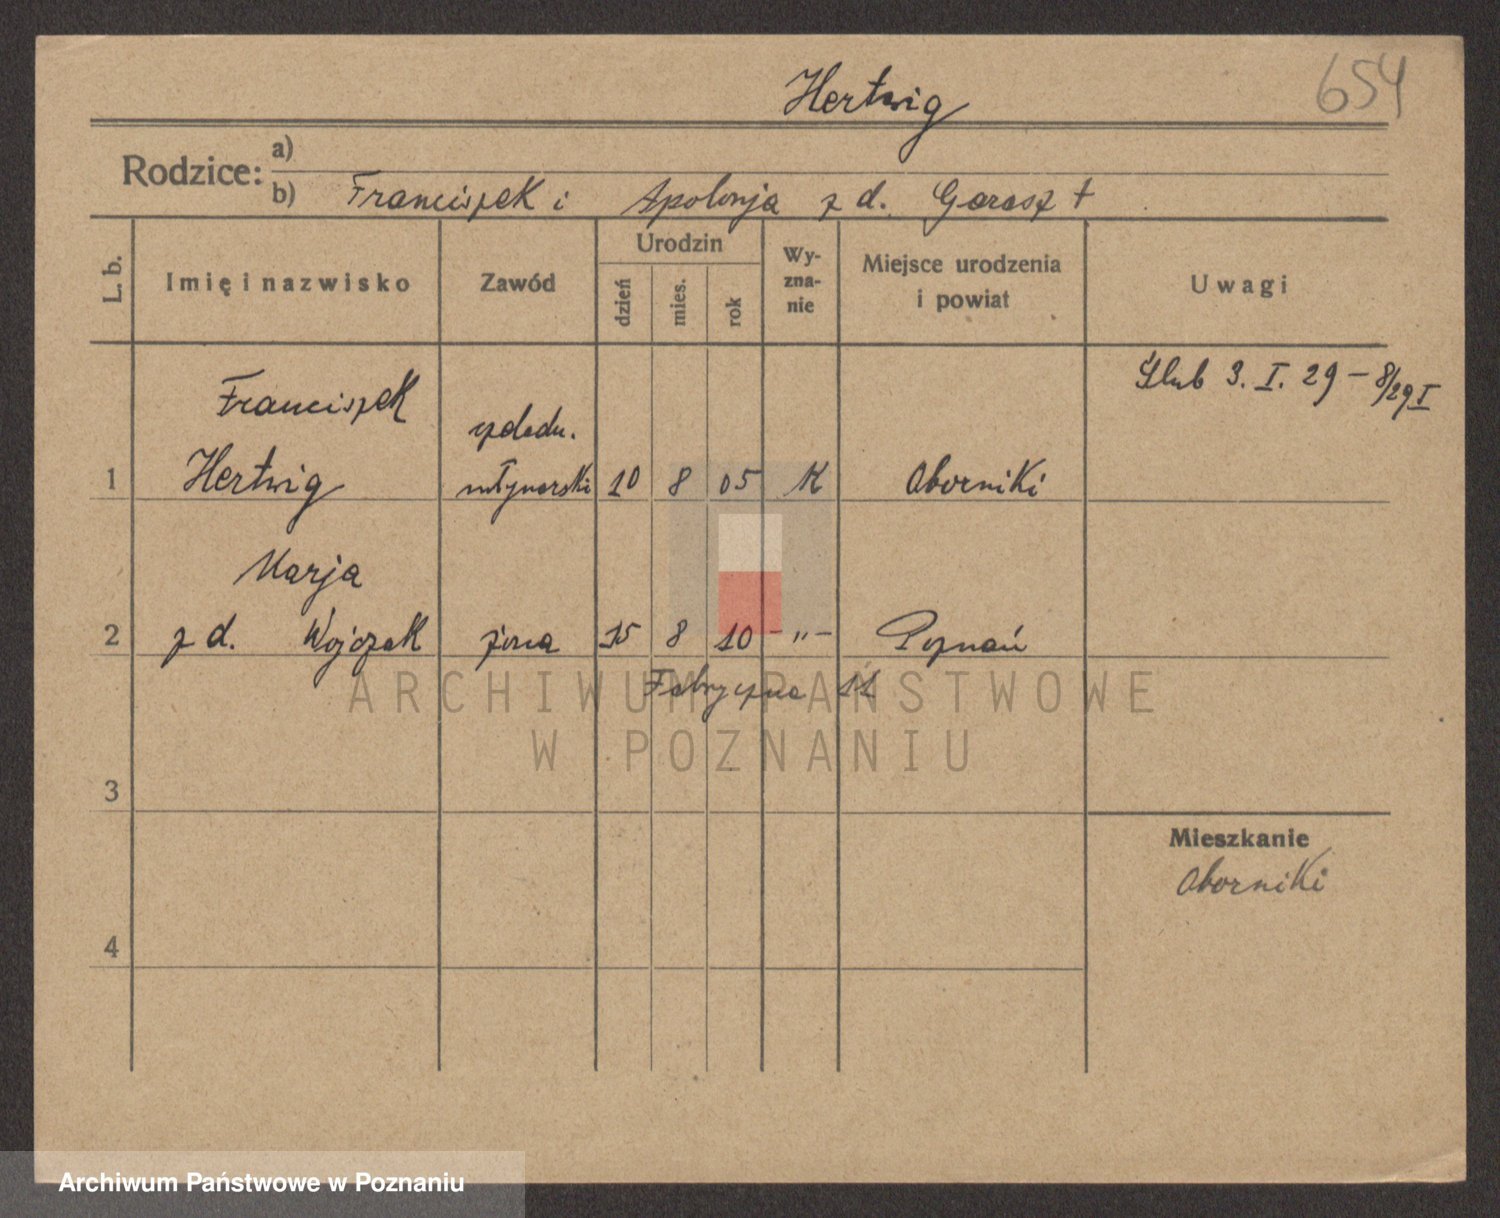 Hertwig
654
Rodzice:
a)
b) Franciszek i Apolonja z d. Garasz †
L. b.
Imię i nazwisko
Zawód
Urodzin
dzień
mies.
rok
Wy-
zna-
nie
Miejsce urodzenia
i powiat
Uwagi
Franciszek
Hertwig
czeladn.
młynarski
1
10 8 05 K Oborniki
Ślub 3. I. 29 – 8/29 I
Marja
2 z d. Wojczak żona 15 8 10 -"- Poznań
Fabryczna 11
3
4
Mieszkanie
Oborniki
ARCHIWUM PAŃSTWOWE
W POZNANIU
Archiwum Państwowe w Poznaniu